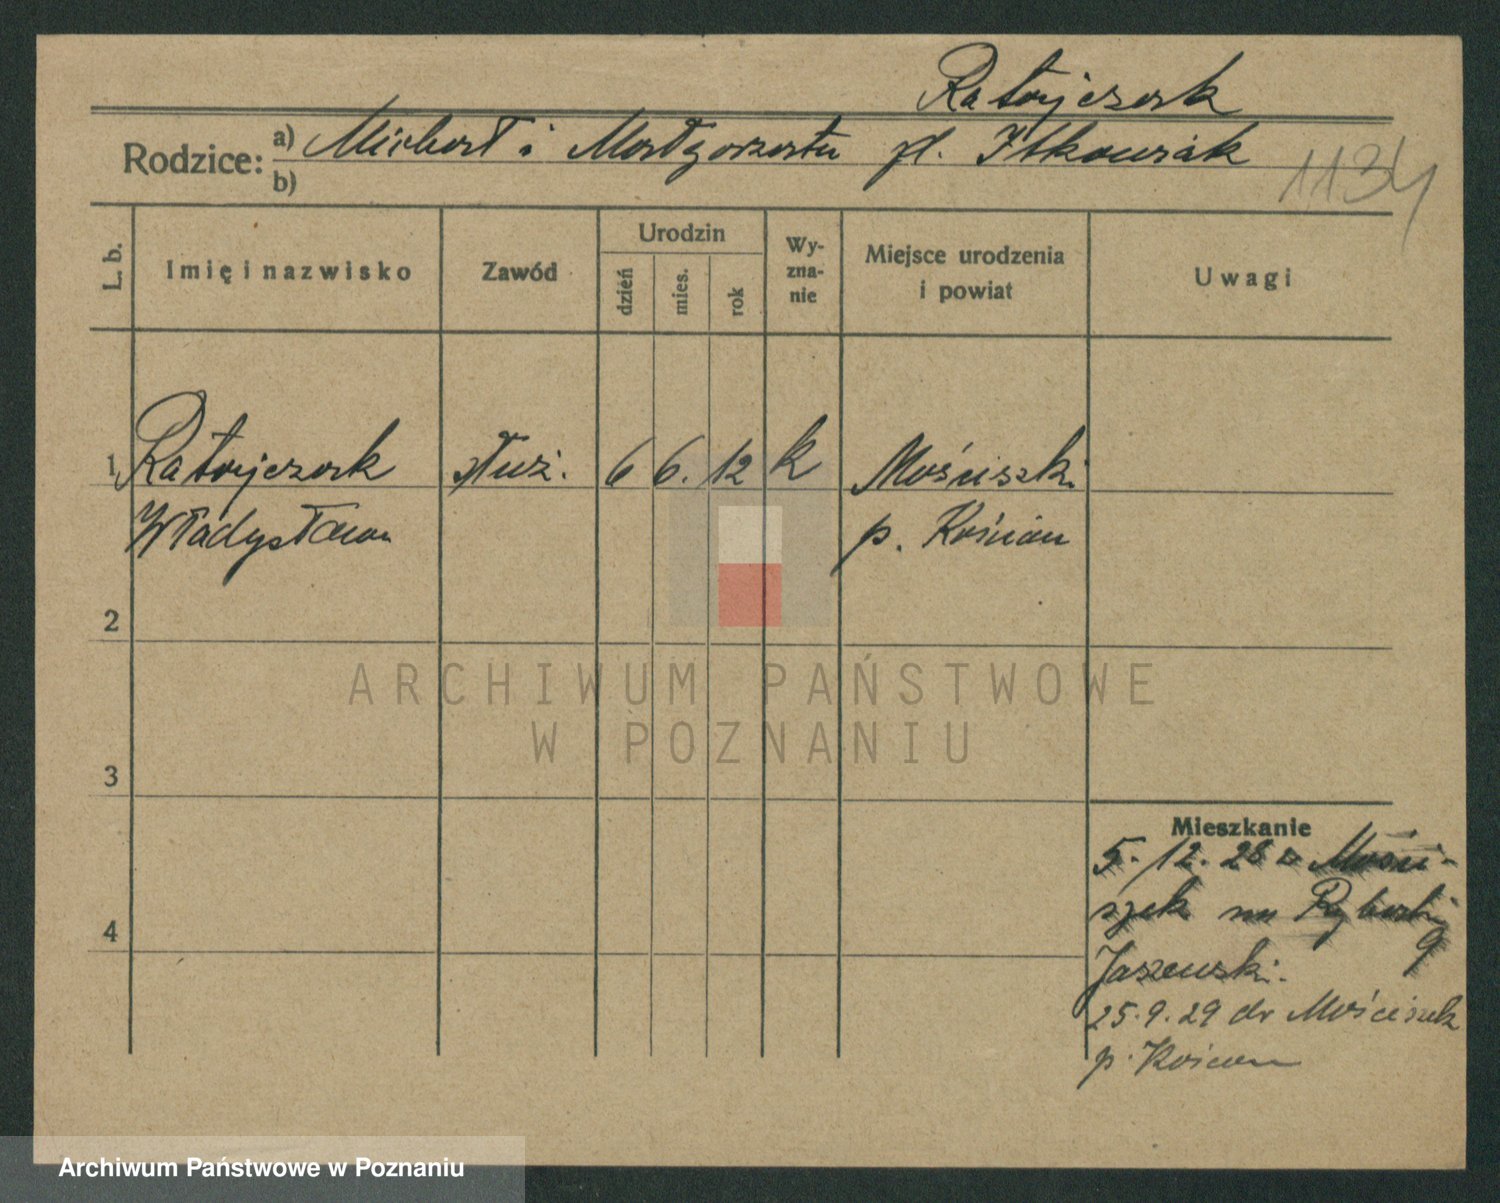 Ratajczak
Rodzice: a) Michał i Małgorzata
b)
1134
L. b. Imię i nazwisko Zawód Urodzin dzień mies. rok Wy-zna-nie Miejsce urodzenia i powiat Uwagi
1 Ratajczak służ. 6 6. 12 k Mościszki
Władysława p. Kościan
2
3
4
Mieszkanie
5. 12. 28 z Mości-
szek na Rybaki
9
Jaszewski.
25. 9. 29 do Mościszek
p. Kościan
ARCHIWUM PAŃSTWOWE
W POZNANIU
Archiwum Państwowe w Poznaniu